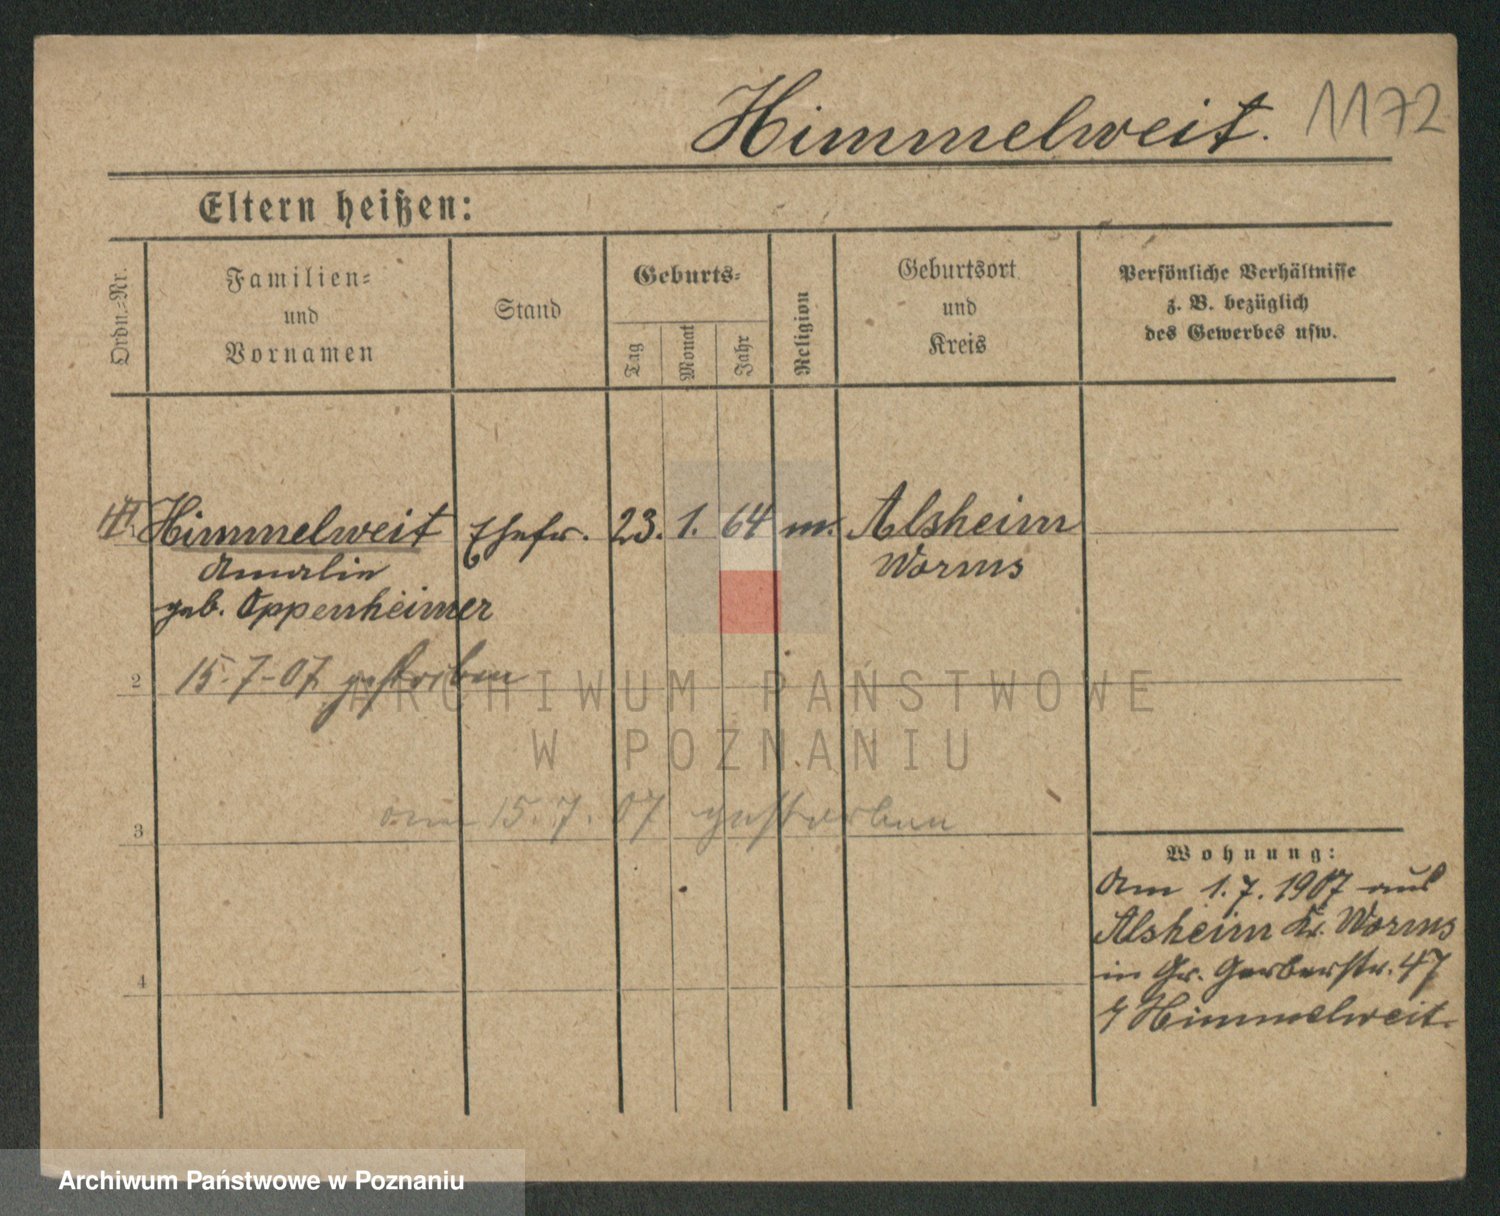 Himmelweit. 1172
Eltern heißen:
Ordn.=Nr.
Familien=
und
Vornamen
Stand
Geburts=
Tag
Monat
Jahr
Religion
Geburtsort
und
Kreis
Persönliche Verhältnisse
z. B. bezüglich
des Gewerbes usw.
Himmelweit Ehefr. 23. 1. 64 m. Alsheim
Amalie Worms
geb. Oppenheimer
2 15.7-07 gestorben
ARCHIWUM PAŃSTWOWE
W POZNANIU
am 15.7.07 gestorben
3
Wohnung:
Am 1.7.1907 aus
Alsheim Kr. Worms
in Gr. Gerberstr. 47
4
Himmelweit.
Archiwum Państwowe w Poznaniu